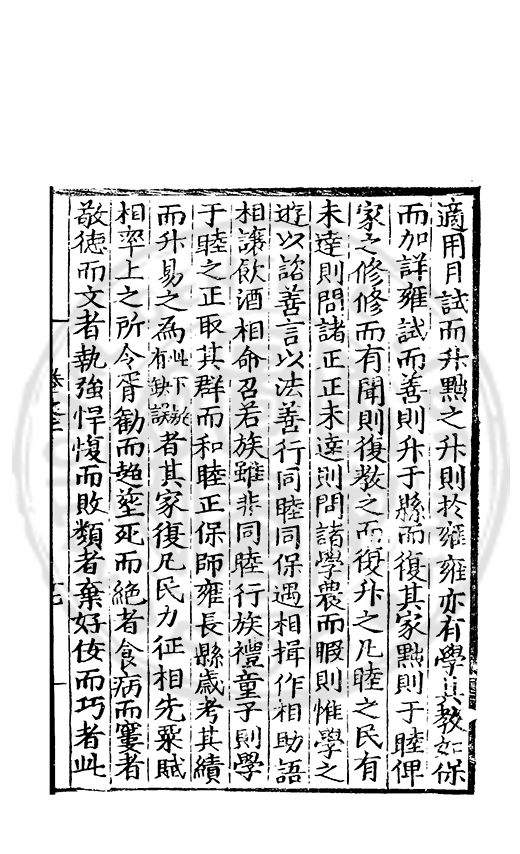 適用月試而升㸃之升則於雍雍亦有學其教如保
而加詳雍試而善則升于縣而復其家㸃則于睦俾
家之修修而有聞則復教之而復升之凡睦之民有
未達則問諸正正未達則問諸學農而暇則惟學之
遊以諮善言以法善行同睦同保遇相揖作相助語
相讓飲酒相命召若族雖非同睦行族禮童子則學
于睦之正取其群而和睦正保師雍長縣歲考其績
而升易之為此下有缺誤者其家復凡民力征相先粟賦
相率上之所令胥勸而趨塟死而絕者食病而窶者
敬徳而文者執強悍愎而敗類者棄好佞而巧者此